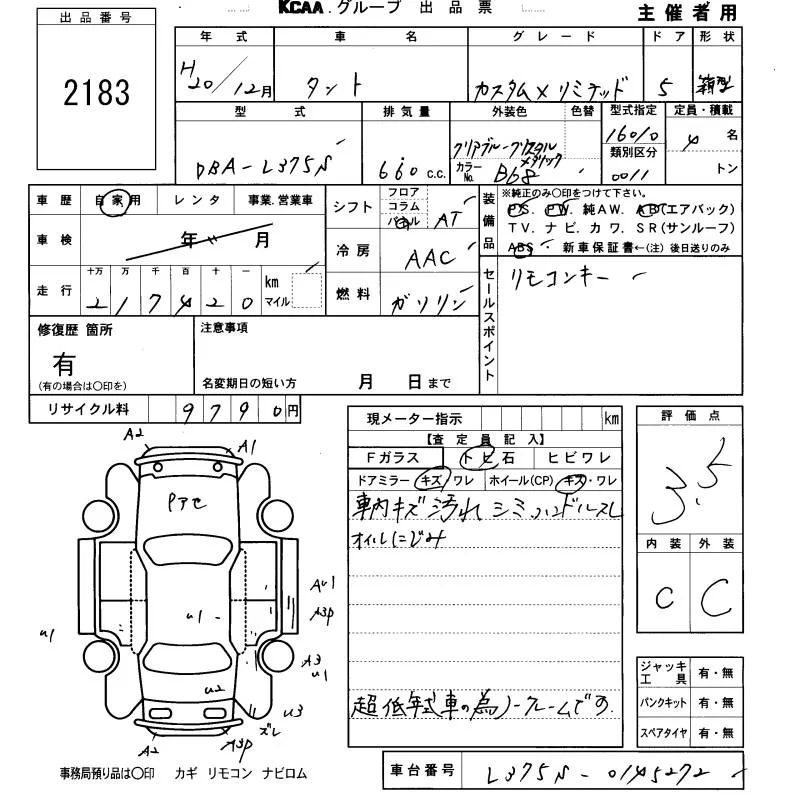 KCAA.グループ 出品票
主催者用
出品番号
2183
年式 車名 グレード ドア 形状
H20/12月 タント カスタムXリミテッド 5 箱型
型式 排気量 外装色 色替 型式指定 定員・積載
DBA-L375S 660 c.c. クリアブルークリスタルメタリック カラーNo. B68 16010 4名
類別区分 0011 トン
車歴 自家用 レンタ 事業.営業車
シフト フロア コラム パネル AT
装備品 ※純正のみ〇印をつけて下さい。
PS. PW. 純AW. AB(エアバック)
TV. ナビ. カワ. SR(サンルーフ)
ABS 新車保証書←(注) 後日送りのみ
車検 年 月
冷房 AAC
走行 十万 万 千 百 十 一 km マイル
217420
燃料 ガソリン
セールスポイント
リモコンキー
修復歴 箇所
有
(有の場合は〇印を)
注意事項
名変期日の短い方 月 日まで
リサイクル料 9790円
現メーター指示 km
【査定員記入】
Fガラス トビ石 ヒビワレ
ドアミラー キズ/ワレ ホイール(CP) キズ・ワレ
車内キズ汚れシミハンドルスレ
オイルにじみ
超低年式車の為ノークレームです
評価点
3.5
内装 外装
C C
ジャッキ 工具 有・無
パンクキット 有・無
スペアタイヤ 有・無
A2
A1
Pアセ
AU1
A3P
U1
U1
A3
U1
U2
U3
ズレ
A2
A3P
事務局預り品は〇印 カギ リモコン ナビロム
車台番号 L375S-0145272